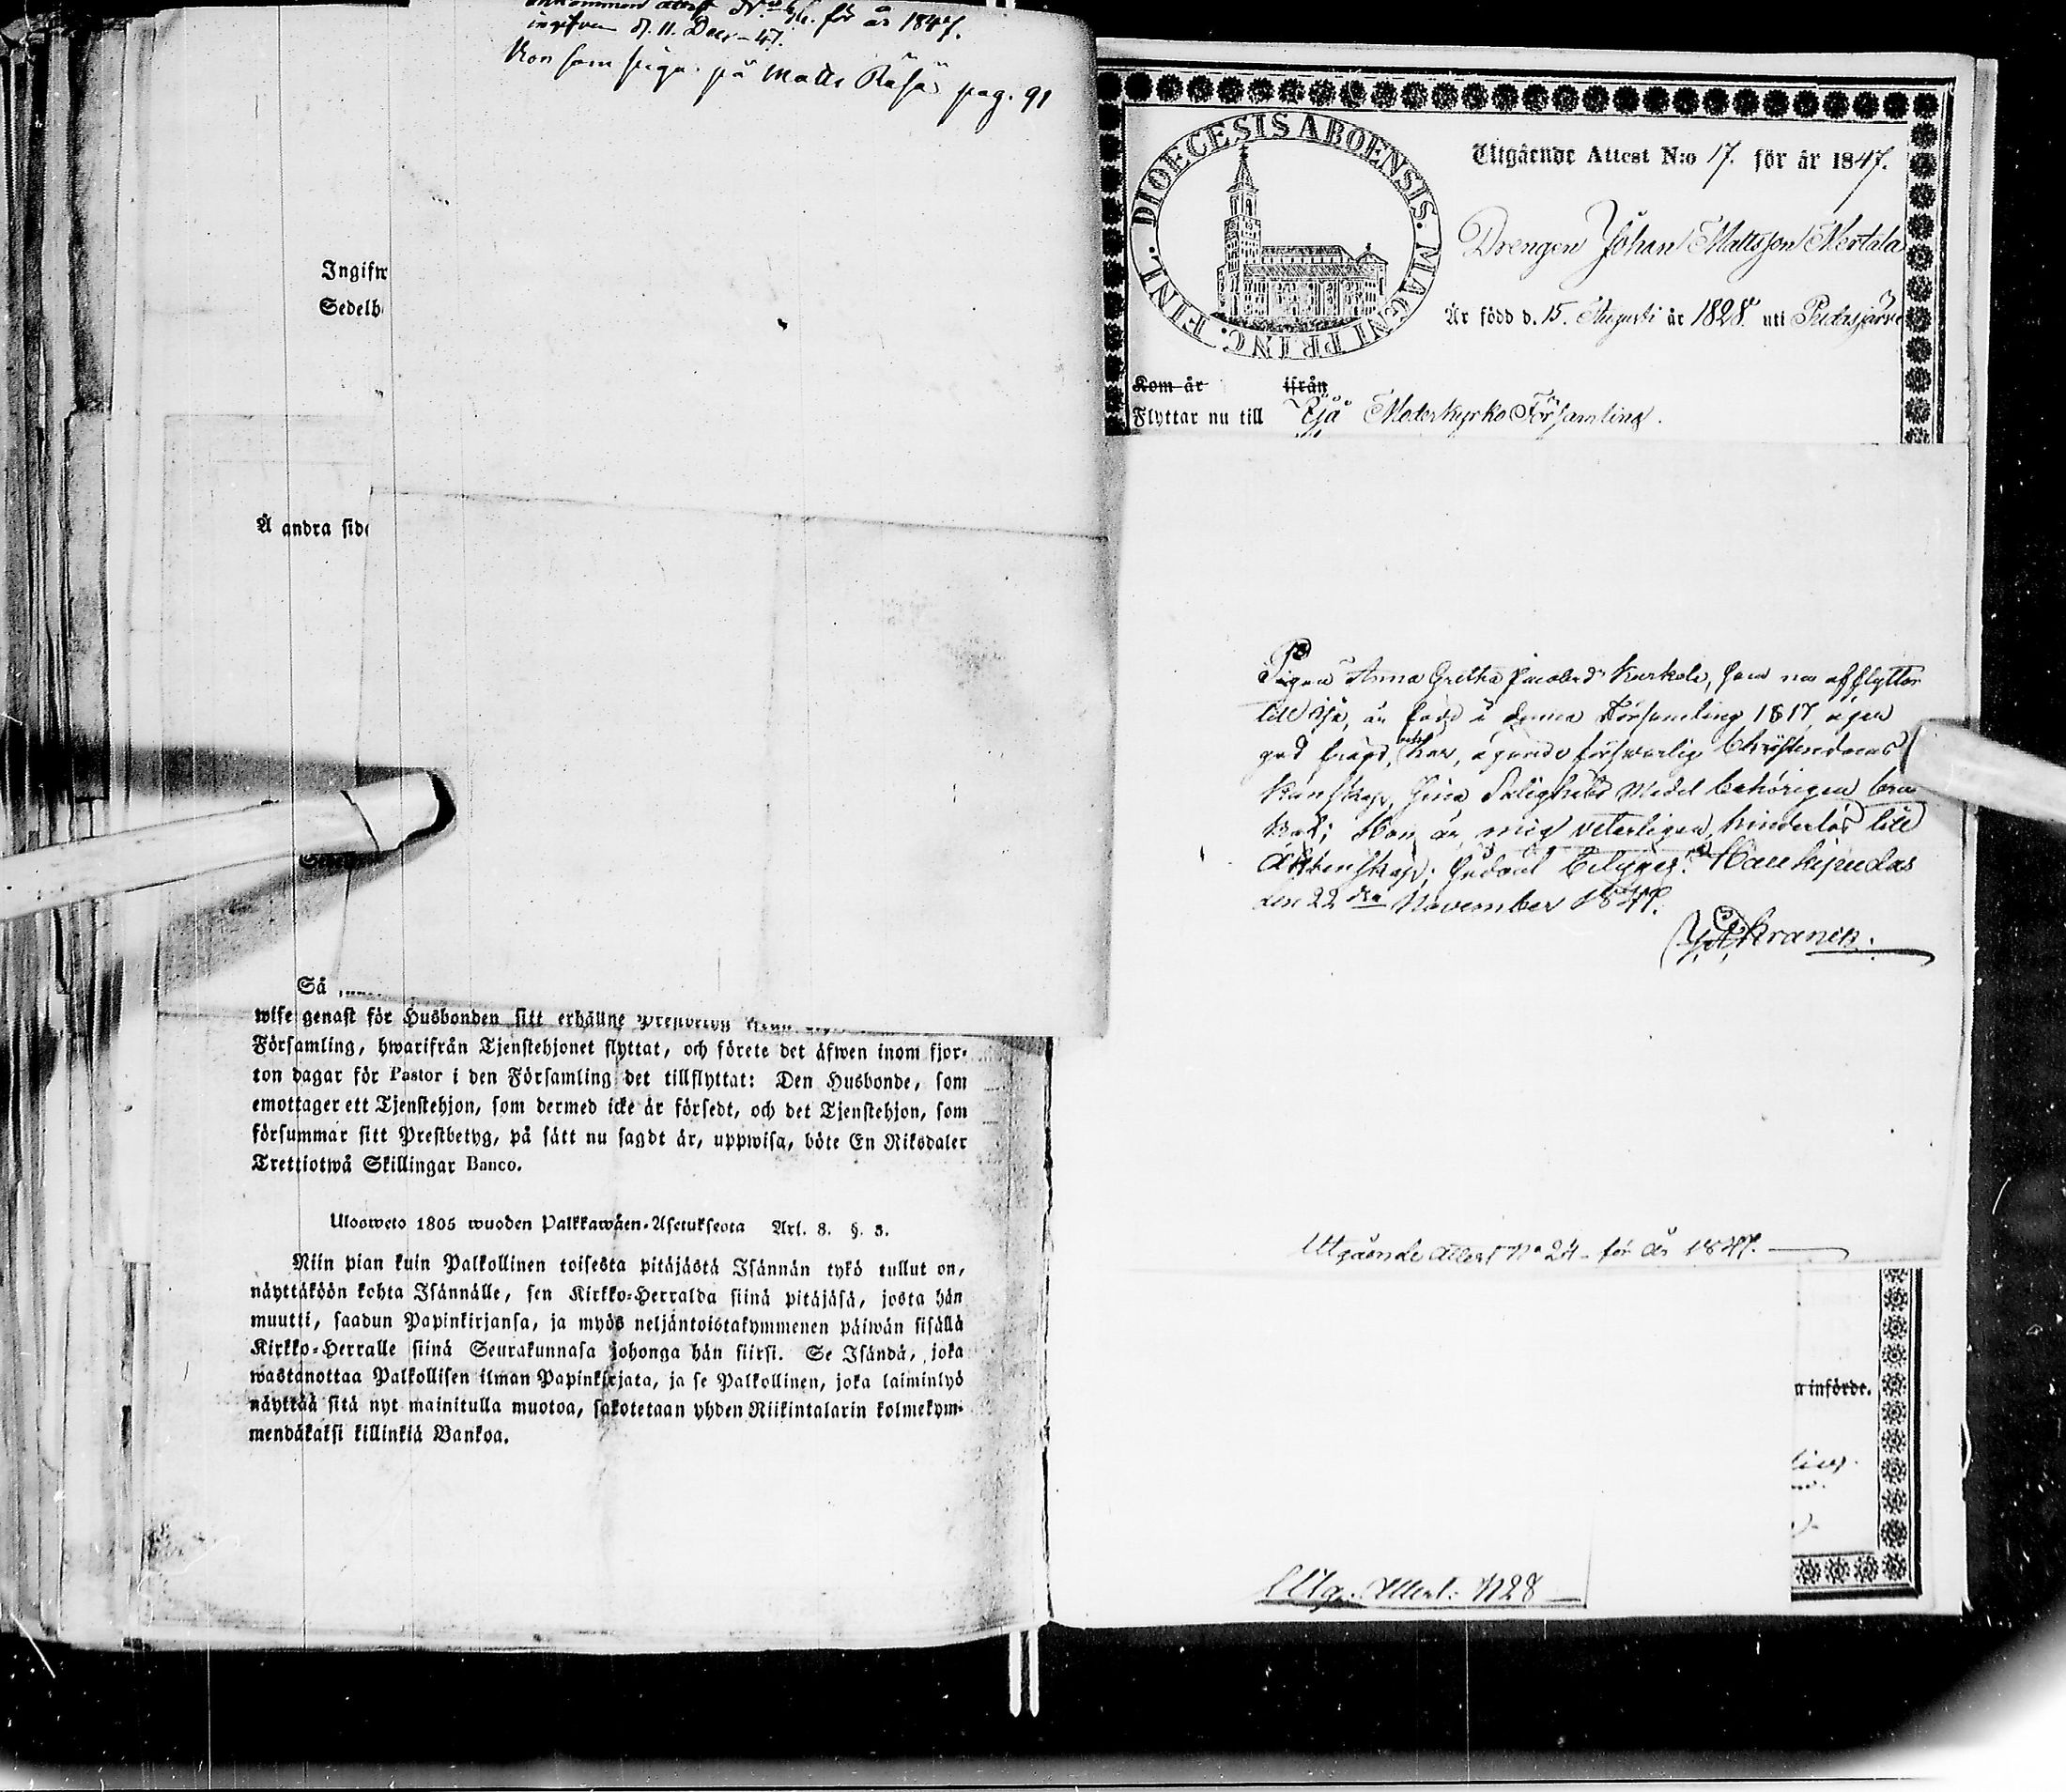 för år 1847.
d. 11. Decr 47.
Kom som piga på Matts Räsä pag. 91
Ingifw
Sedelb
Å andra side
Så
wise genast för Husbonden sitt erhållne
Församling, hwarifrån Tjenstehjonet flyttat, och förete det äfwen inom fjor-
ton dagar för Pastor i den Församling det tillflyttat: Den Husbonde, som
emottager ett Tjenstehjon, som dermed icke är försedt, och det Tjenstehjon, som
försummar sitt Prestbetyg, på sätt nu sagdt är, uppwisa, böte En Riksdaler
Trettiotwå Skillingar Banco.
Ulosweto 1805 wuoden Palkkawäen-Asetuksesta Art. 8. §. 3.
Niin pian kuin Palkollinen toisesta pitäjästä Isännän tykö tullut on,
näyttäköön kohta Isännälle, sen Kirkko-Herralda siinä pitäjäsä, josta hän
muutti, saadun Papinkirjansa, ja myös neljäntoistakymmenen päiwän sisällä
Kirkko-Herralle siinä Seurakunnasa johonga hän siirsi. Se Isändä, joka
wastanottaa Palkollisen ilman Papinkirjata, ja se Palkollinen, joka laiminlyö
näyttää sitä nyt mainitulla muotoa, sakotetaan yhden Riikintalarin kolmekym-
mendäkaksi killinkiä Bankoa.
DIOECESIS ABOENSIS. MAGNI PRINC. FINL.
Utgående Attest N:o 17. för år 1847.
Drengen Johan Mattsson Kertala
Är född d. 15. Augusti år 1828. uti Pudasjärvi
Kom år ifrån
Flyttar nu till Ijå Moderkyrko Församling.
Pigan Anna Gretha Jacobsdr Kurkela, som nu afflyttar
till Ijå, är född i denna Församling 1817, äger
god frägd, har, ägande förswarlig Christendoms
kunskap, sina Salighets Medel behörigen bru
kat; Hon är mig veterligen hinderlös till
Äktenskap; hvilket betygas. Haukipudas
den 22dra November 1847.
Utgående attest No 24 för år 1847.
a införde.
Utg. Attest: N 28